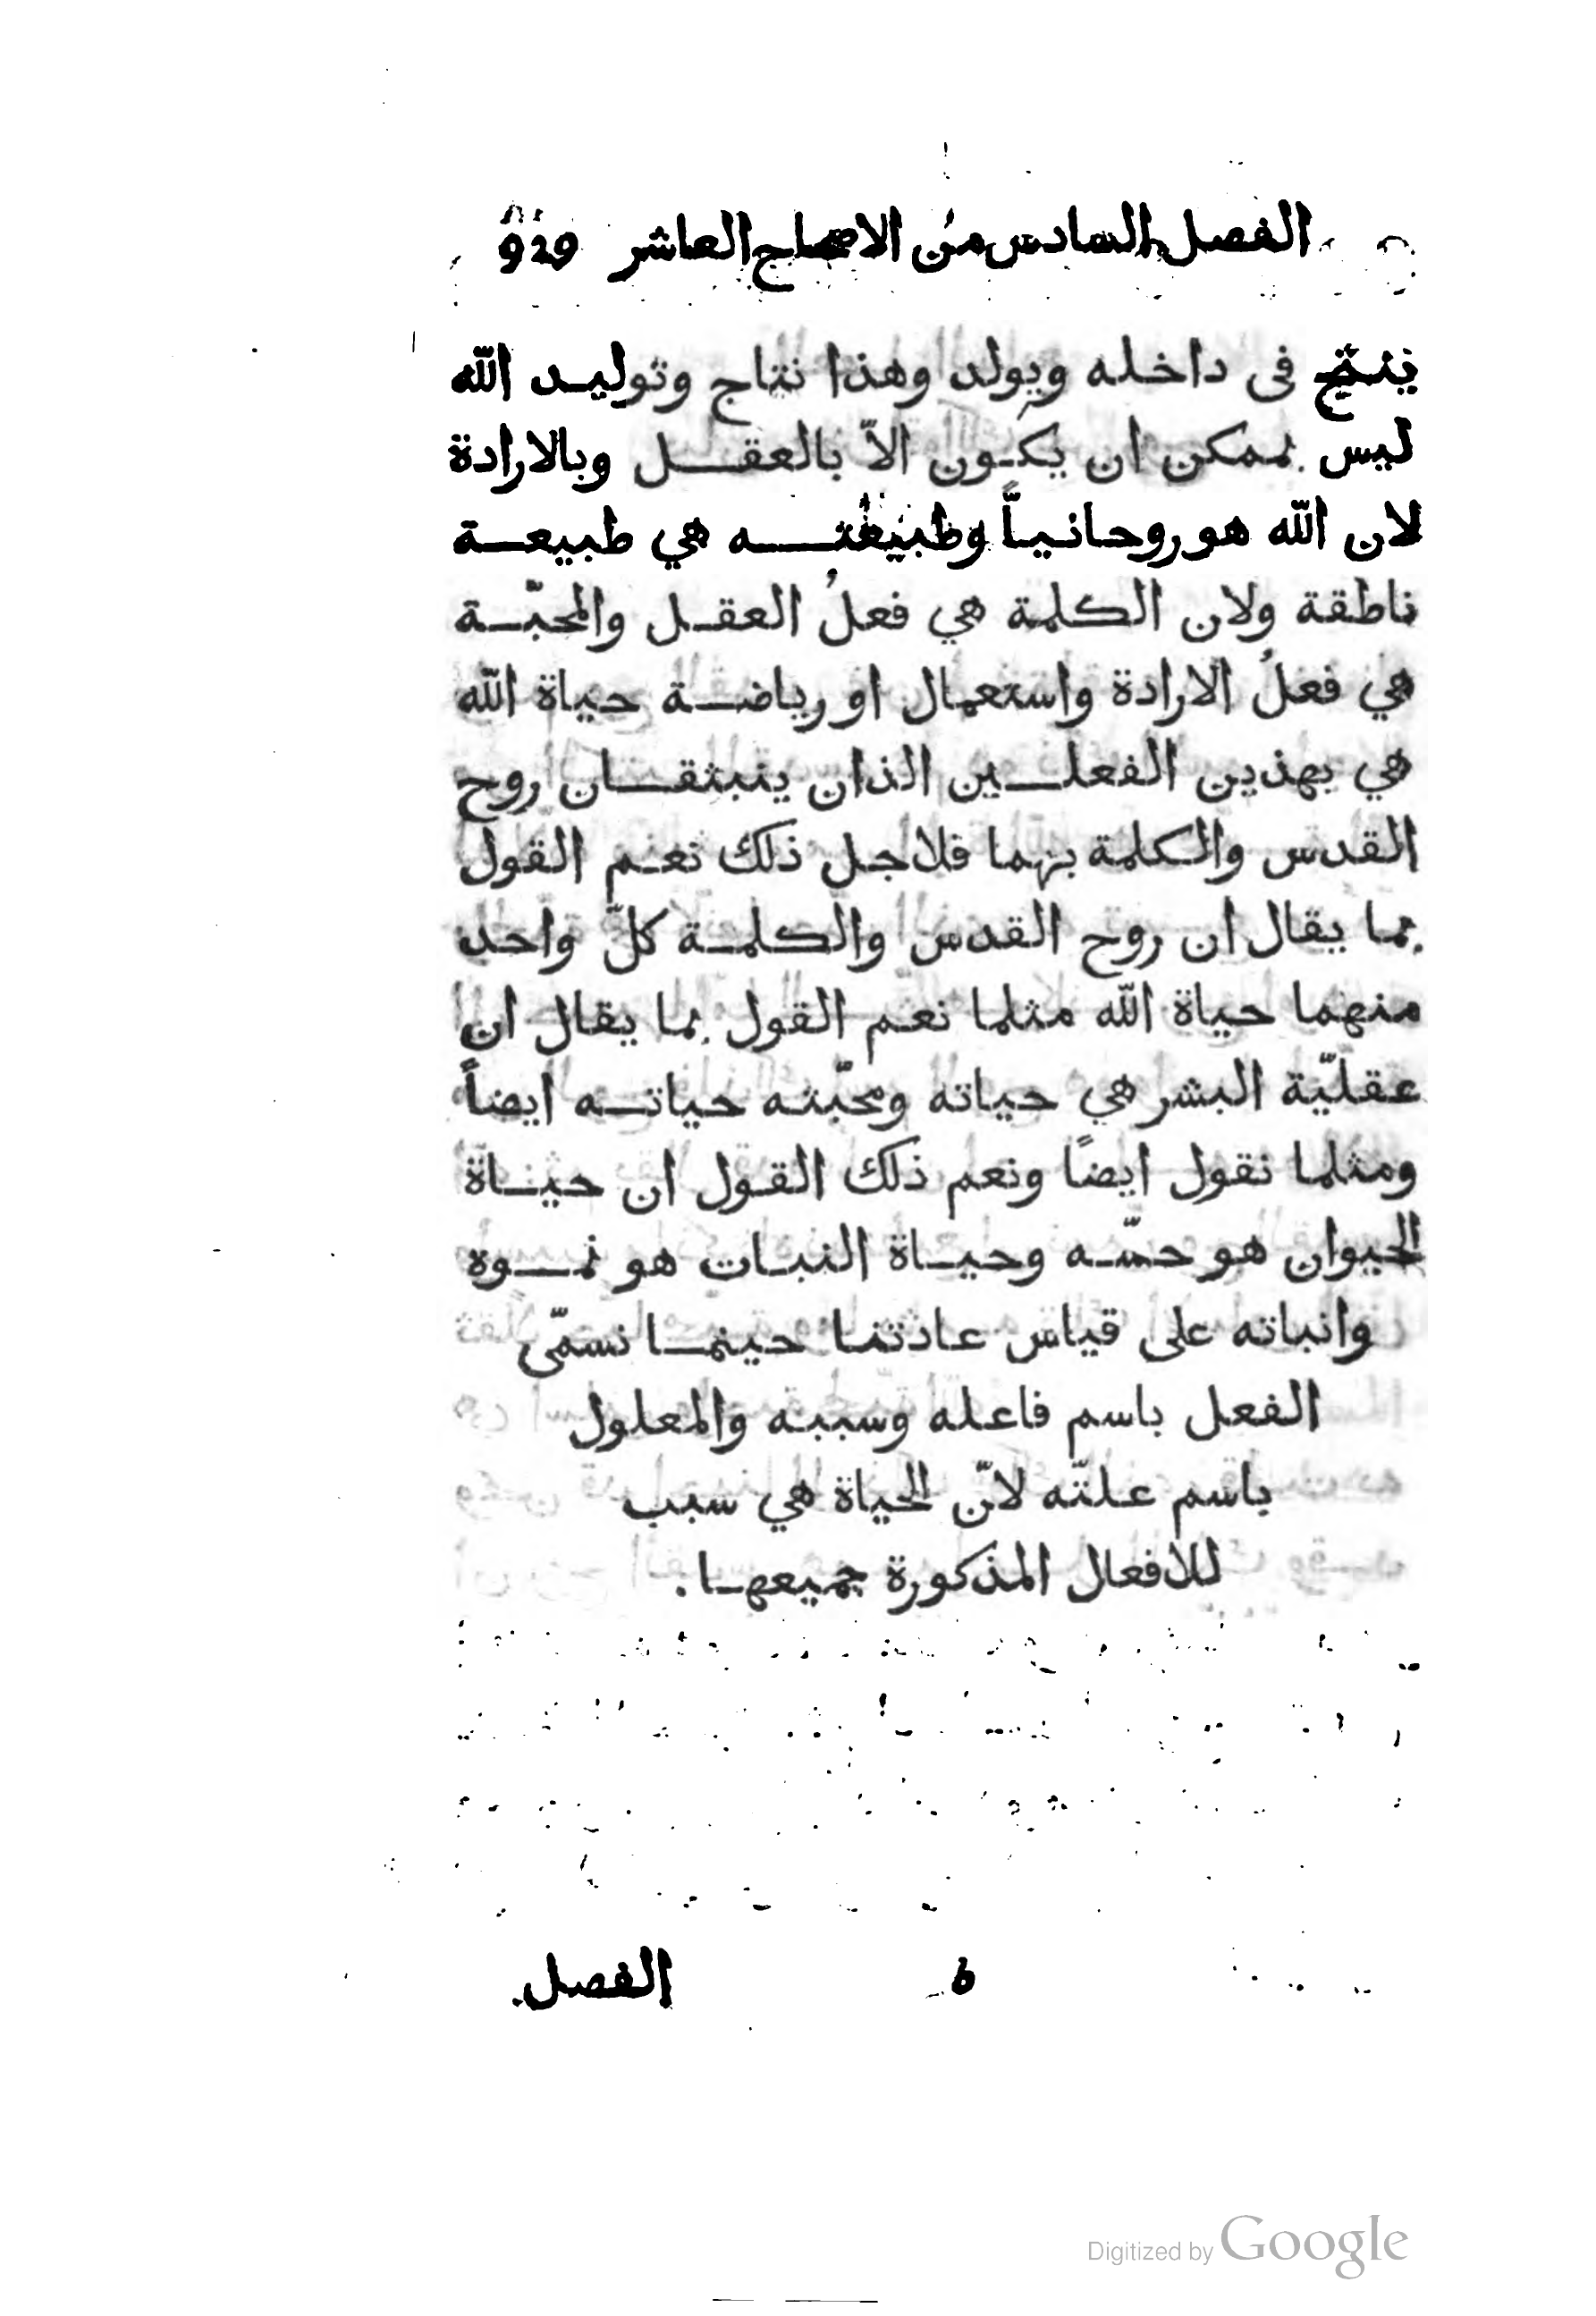 الفصل السادس من الاصحاح العاشر 929
ينتج فى داخله ويولد وهذا نتاج وتوليد الله
ليس بممكن ان يكون الاّ بالعقل وبالارادة
لان الله هو روحانياً وطبيعته هي طبيعة
ناطقة ولان الكلمة هي فعلُ العقل والمحبّة
هي فعلُ الارادة واستعمال او رياضة حياة الله
هي بهذين الفعلين الذان ينبثقان روح
القدس والكلمة بهما فلاجل ذلك نعم القول
بما يقال ان روح القدس والكلمة كلّ واحد
منهما حياة الله مثلما نعم القول بما يقال ان
عقليّة البشر هي حياته ومحبّته حياته ايضاً
ومثلما نقول ايضاً ونعم ذلك القول ان حياة
الحيوان هو حسّه وحياة النبات هو نموه
وانباته على قياس عادتنا حينما نسمّى
الفعل باسم فاعله وسببه والمعلول
باسم علتّه لانّ الحياة هي سبب
للافعال المذكورة جميعها.
6 الفصل
Digitized by Google